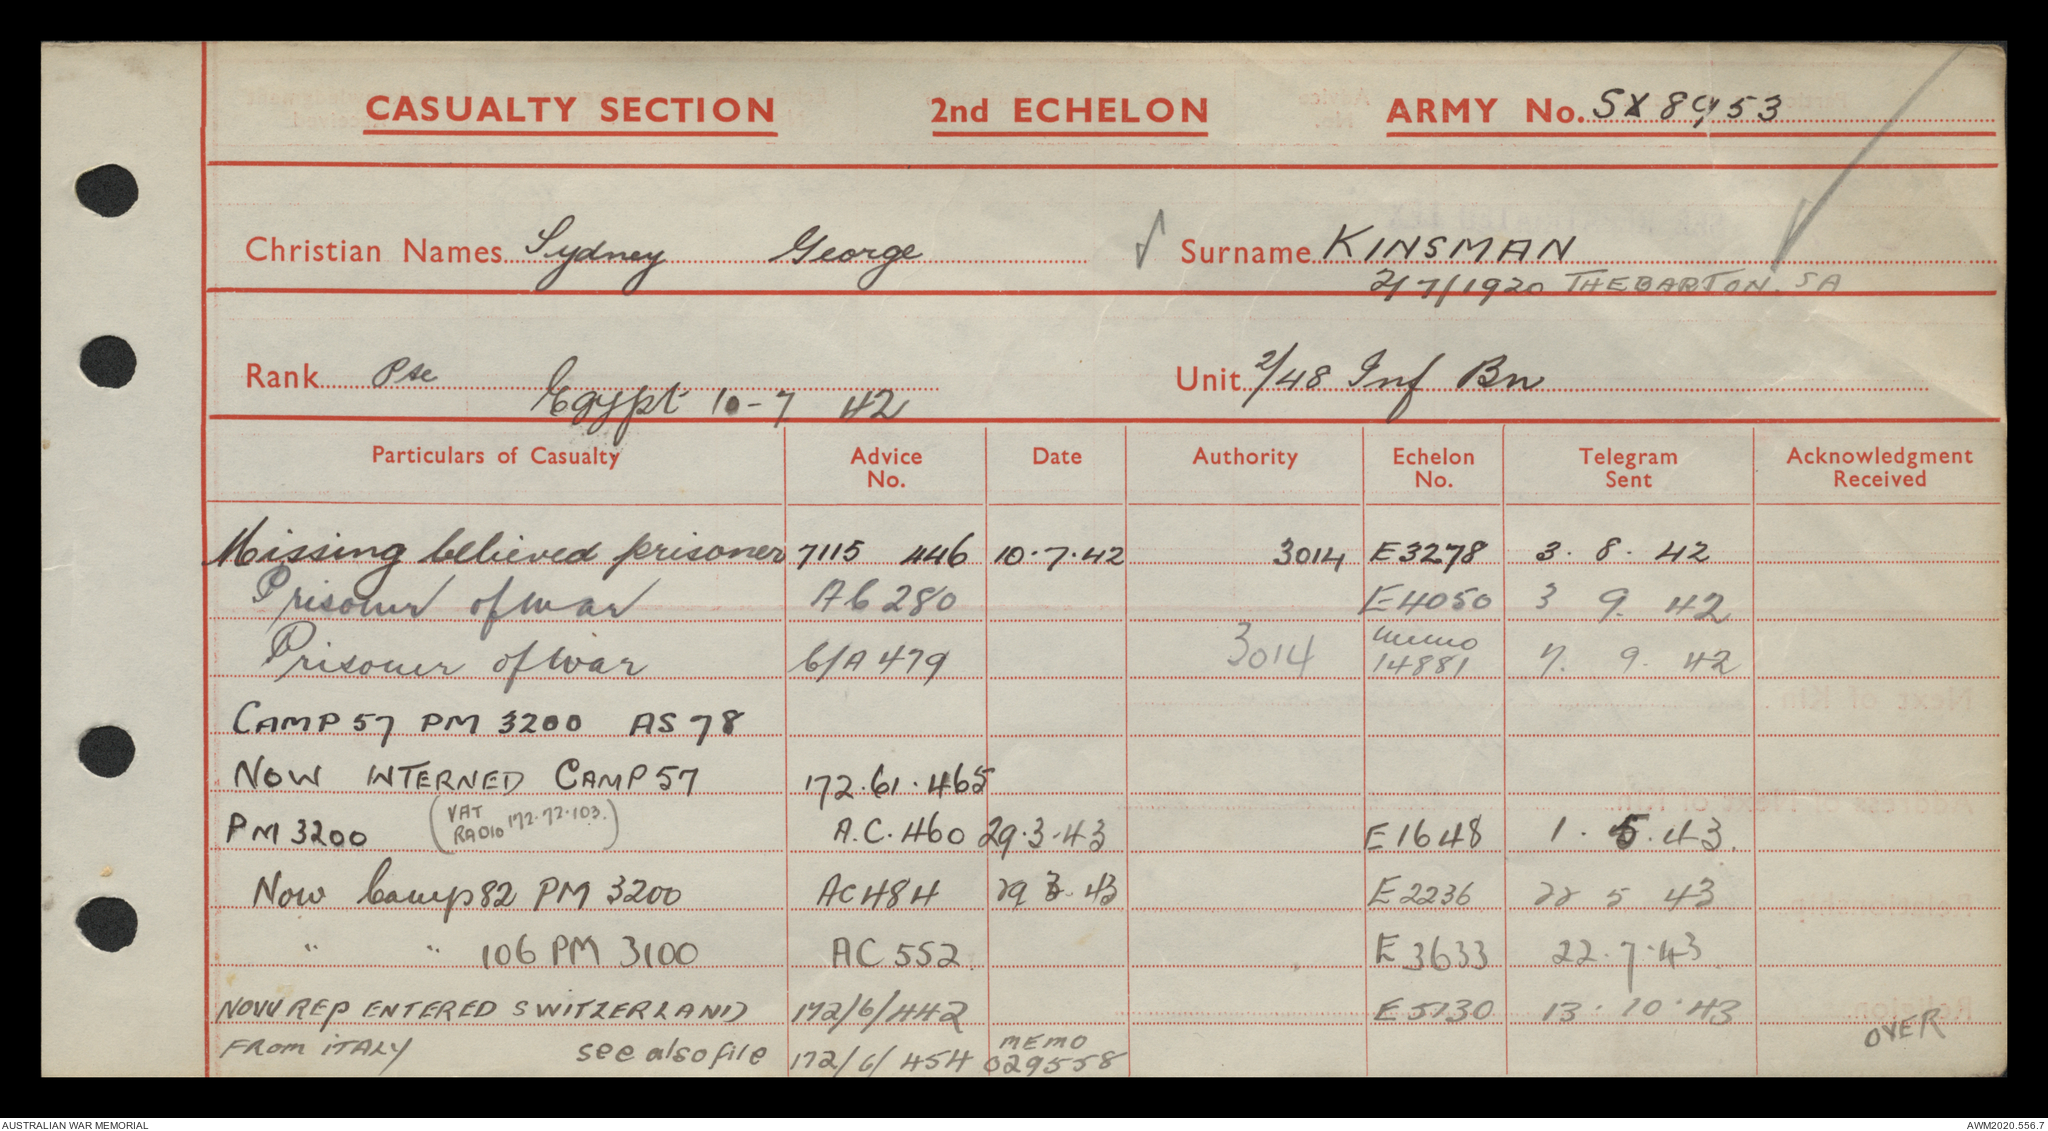 CASUALTY SECTION 2nd ECHELON ARMY No. SX 8953
Christian Names Sydney George Surname KINSMAN
2/7/1920 THEBARTON. SA
Rank Pte Unit 2/48 Inf Bn
Egypt 10-7 42
Particulars of Casualty Advice No. Date Authority Echelon No. Telegram Sent Acknowledgment Received
Missing believed prisoner 7115 446 10.7.42 3014 E3278 3. 8. 42
Prisoner of war A6 280 E4050 3 9. 42
Prisoner of War 6/A 479 3014 memo 14881 7. 9. 42
CAMP 57 PM 3200 AS 78
NOW INTERNED CAMP 57 172.61.465
PM 3200 (VAT RADIO 172.72.103.) A.C. 460 29.3.43 E1648 1. 5. 43.
Now Camp 82 PM 3200 AC 484 29 3. 43 E2236 22 5 43
" " 106 PM 3100 AC 552 E 3633 22.7.43
NOW REP ENTERED SWITZERLAND 172/6/442 E 5130 13. 10. 43
FROM ITALY see also file 172/6/454 MEMO 029558 OVER
AUSTRALIAN WAR MEMORIAL AWM2020.556.7